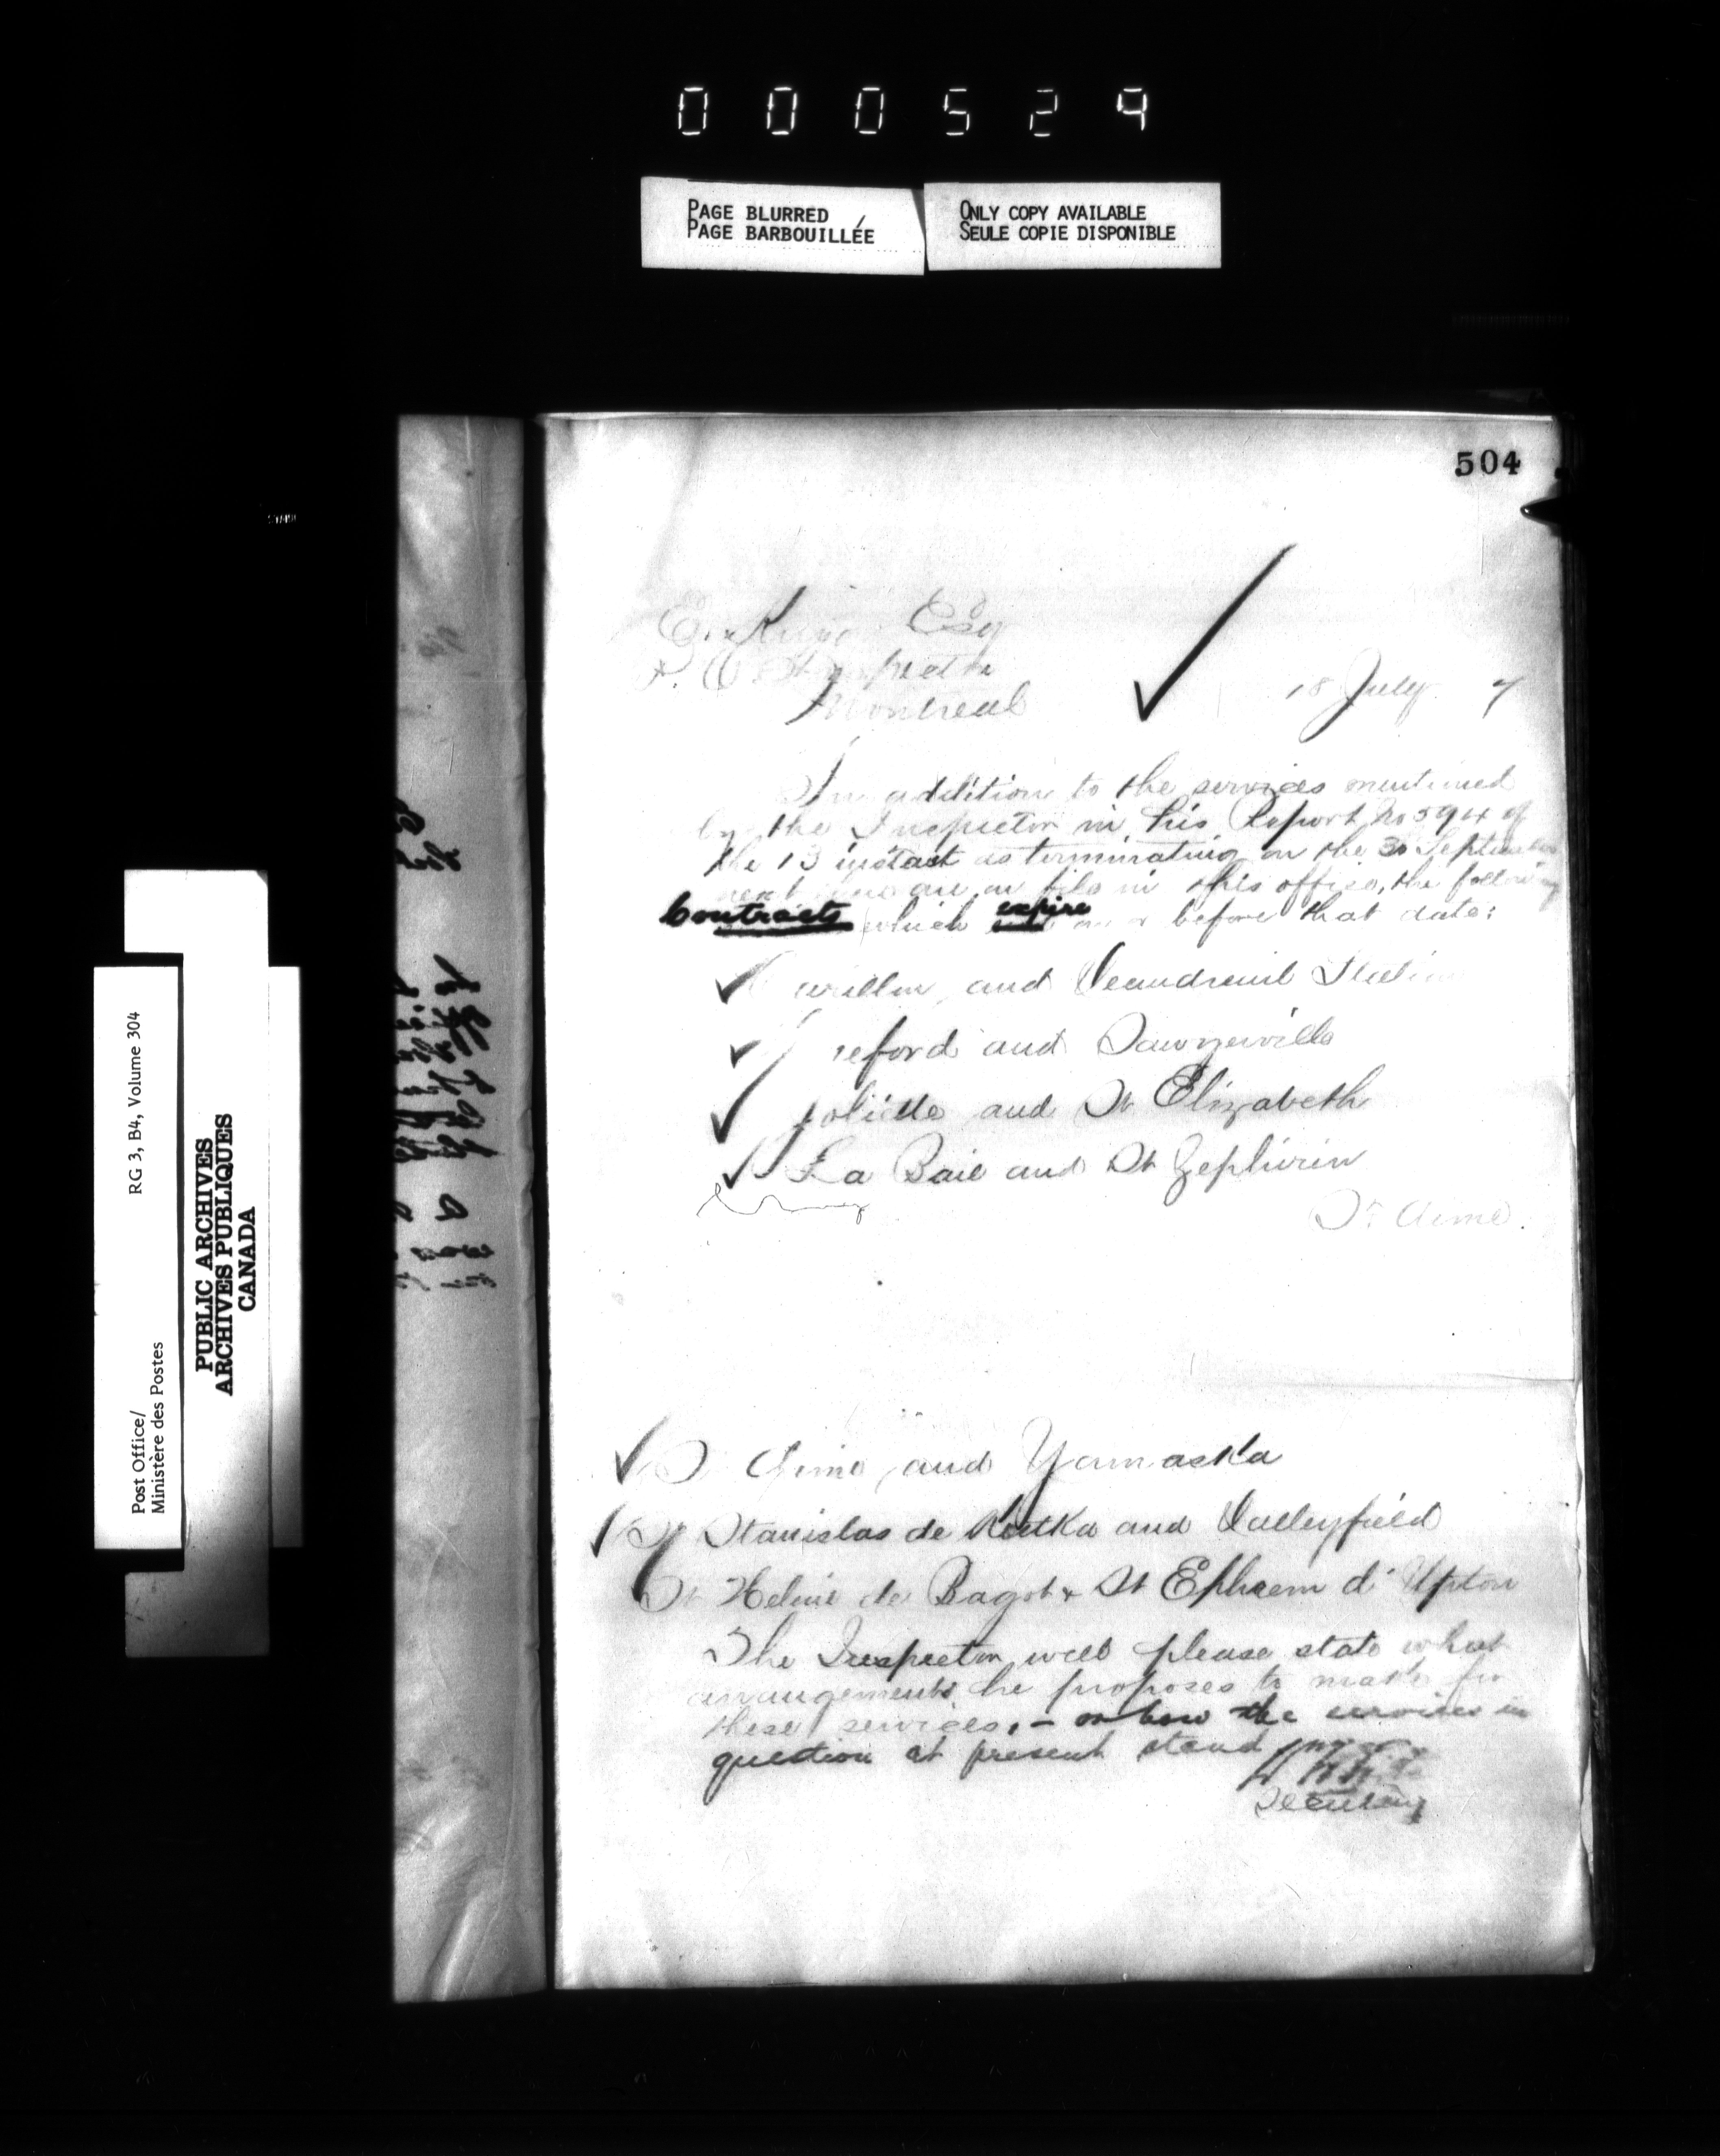 000529
PAGE BLURRED
PAGE BARBOUILLÉE
ONLY COPY AVAILABLE
SEULE COPIE DISPONIBLE
504
E. King Esq
P. O. Inspector
Montreal
18 July 7
In addition to the services mentioned
by the Inspector in his Report No 594 of
the 13 instant as terminating on the 30 September
next there are on file in this office, the following
Contracts which expire on or before that date:
arillon and Vaudreuil Station
reford and Sawyerville
Joliette and St Elizabeth
La Baie and St Zephirin
St Aime.
St Aime and Yamaska
St Stanislas de Kostka and Valleyfield
St Helene de Bagot & St Ephrem d' Upton
The Inspector will please state what
arrangements he proposes to make for
these services, - or how the services in
question at present stand
Secretary
Post Office/
Ministère des Postes
RG 3, B4, Volume 304
PUBLIC ARCHIVES
ARCHIVES PUBLIQUES
CANADA